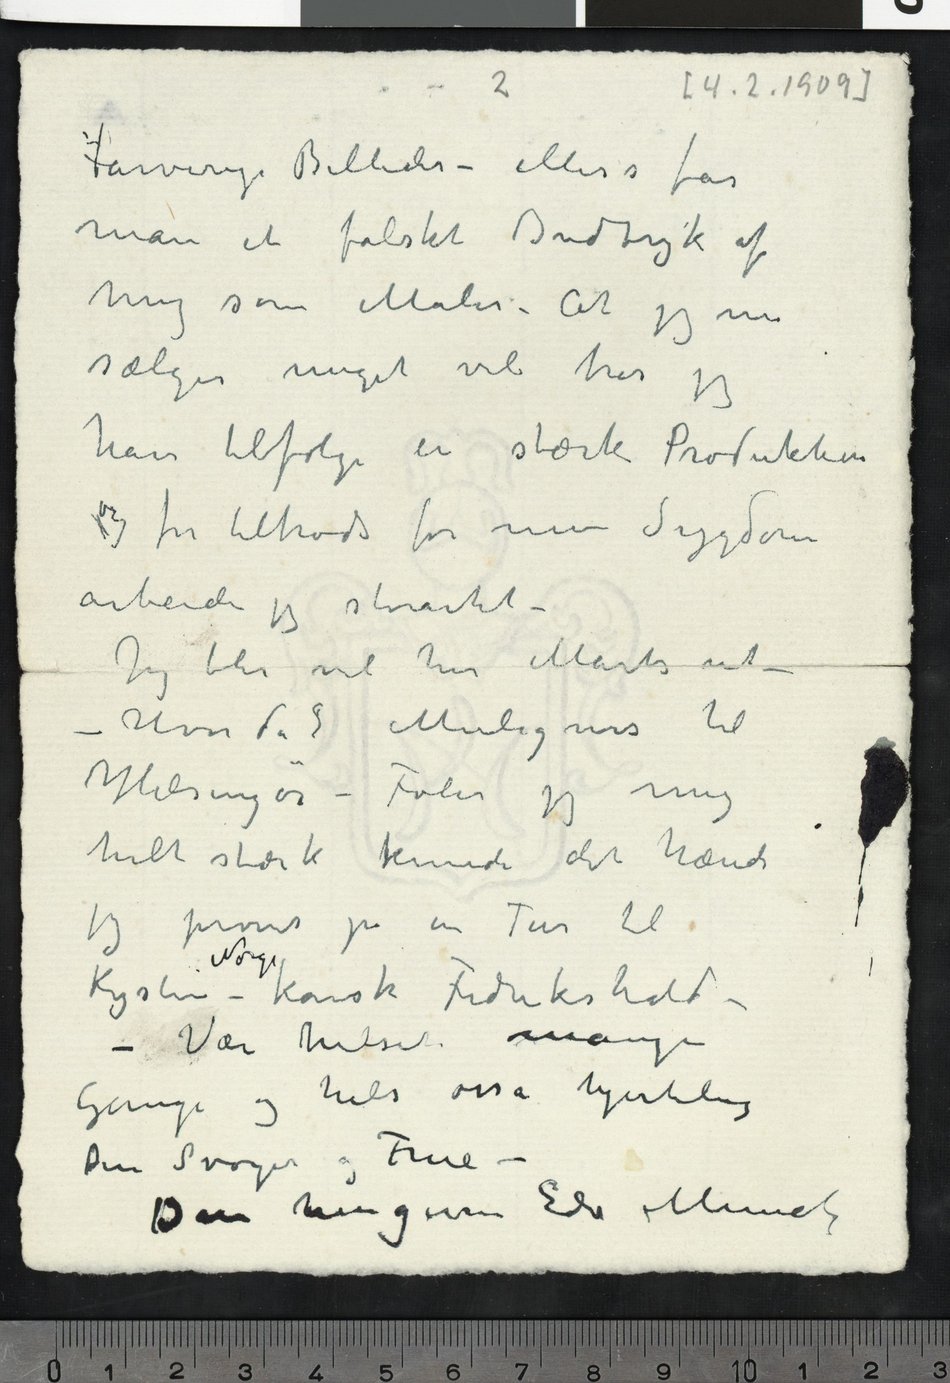 2 [4.2.1909]
farverige Billeder – ellers får
man et falskt Indtryk af
mig som Maler. At jeg nu
sælger meget vel har jeg
havt tilfølge en stærk Produktion
og for tiltrods for min Sygdom
arbeide jeg storartet –
Jeg blir vel her Marts ut –
– Hvor da? Muligens til
Helsingör – Føler jeg mig
helt stærk kunde det hænde
jeg prøvet på en Tur til
Kysten – Norge kansk Fedrikshald –
– Vær hilset mange
Gange og hils osså hjerteligt
Din Svoger og Frue –
Din hengivne Edv Munch
0 1 2 3 4 5 6 7 8 9 10 1 2 3